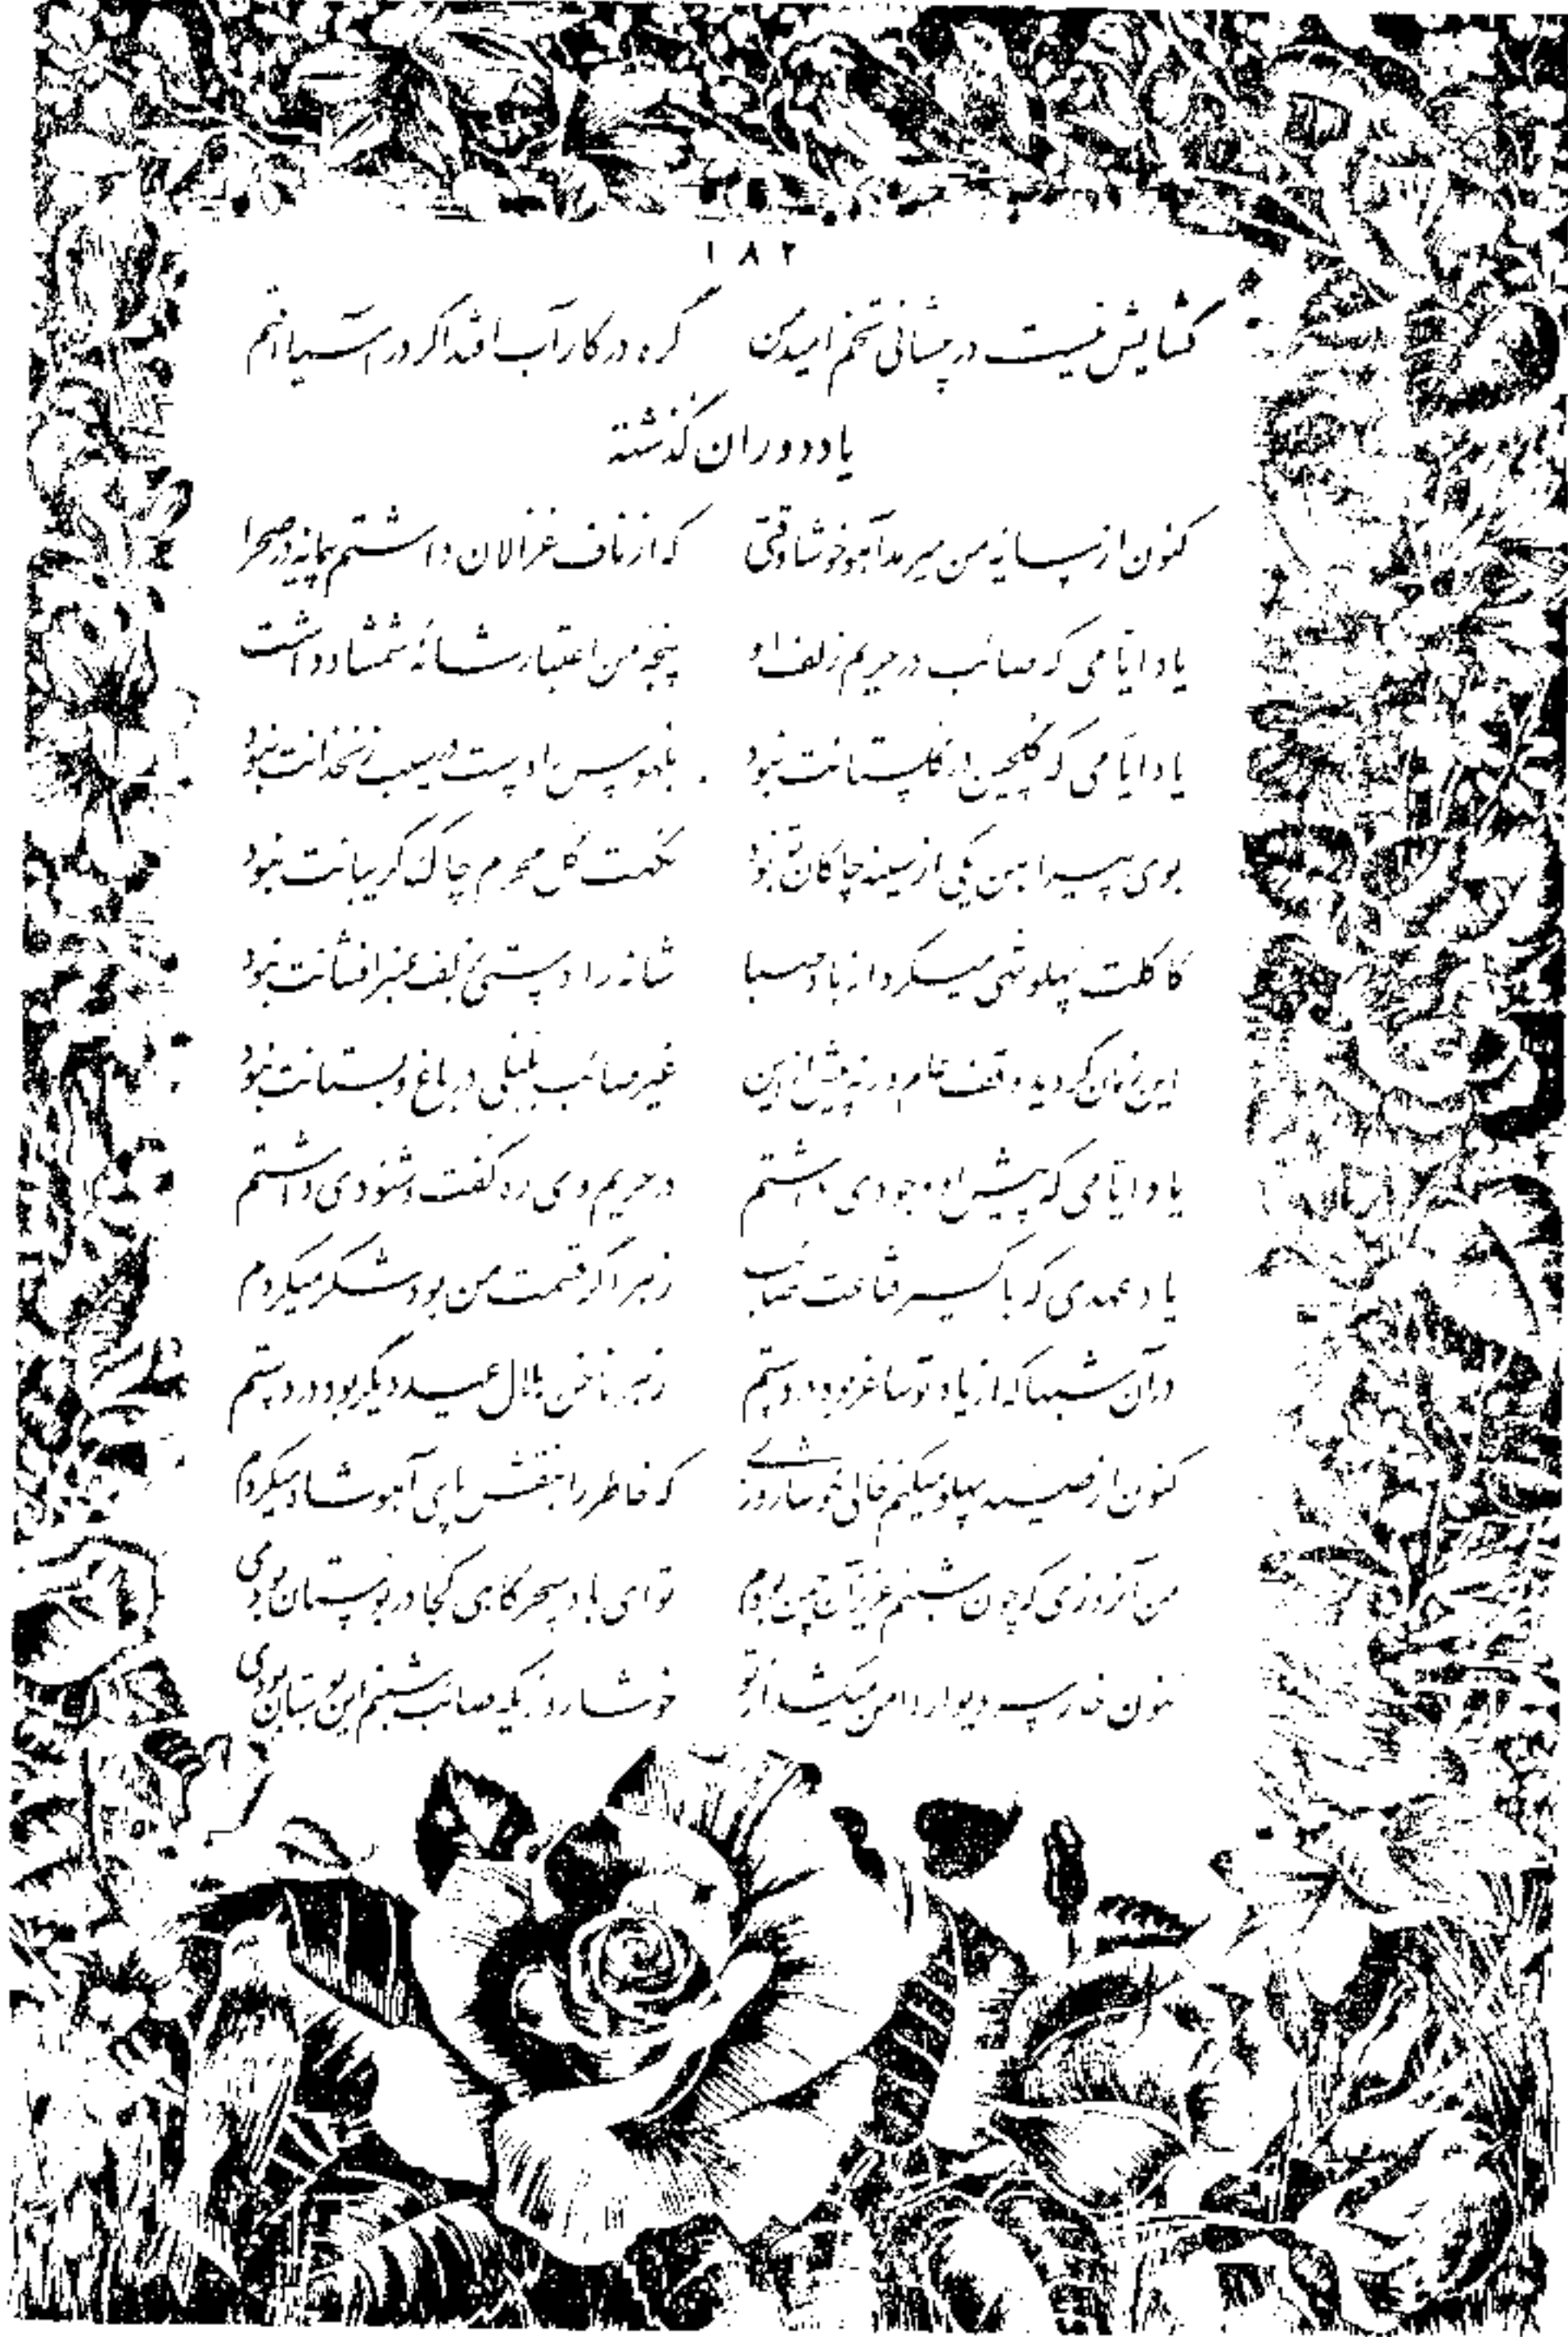 ۱۸۲
گشایش نیست در پیشانی تخم امید من گره در کار آب افتد اگر در آسیا افتم
یاد دوران گذشته
کنون از سایه من میرمد آهو خوشا وقتی که از ناف غزالان داشتم پیمانه در صحرا
یاد ایامی که صائب در حریم زلف او پنجه من اعتبار شانهٔ شمشاد داشت
یاد ایامی که گلچین در گلستانت نبود بلهوس را دست در سیب زنخدانت نبود
بوی پیراهن یکی از سینه چاکانت نبود نکهت گل محرم چاک گریبانت نبود
کاکلت پهلو تهی میکرد از باد صبا شانه را دستی بزلف عنبرافشانت نبود
این زمان گردید وقف عام ورنه پیش ازین غیر صائب بلبلی در باغ و بستانت نبود
یاد ایامی که پیش او وجودی داشتم در حریم وی ره گفت و شنودی داشتم
یاد عهدی که باکسیر قناعت صائب زهر اگر قسمت من بود شکر میکردم
در آن شبها که از یاد تو ساغر بود در دستم زهر ناخن هلال عید دیگر بود در دستم
کنون از صید پهلو میکنم خالی خوشا روزی که خاطر را بنقش پای آهو شاد میکردم
من آنروزی که چون شبنم عزیز آن چمن بودم تو ای باد سحرگاهی کجا در بوستان بودی
کنون خار سر دیوار دامن میکشد از تو خوشا روزیکه صائب شبنم این بوستان بودی